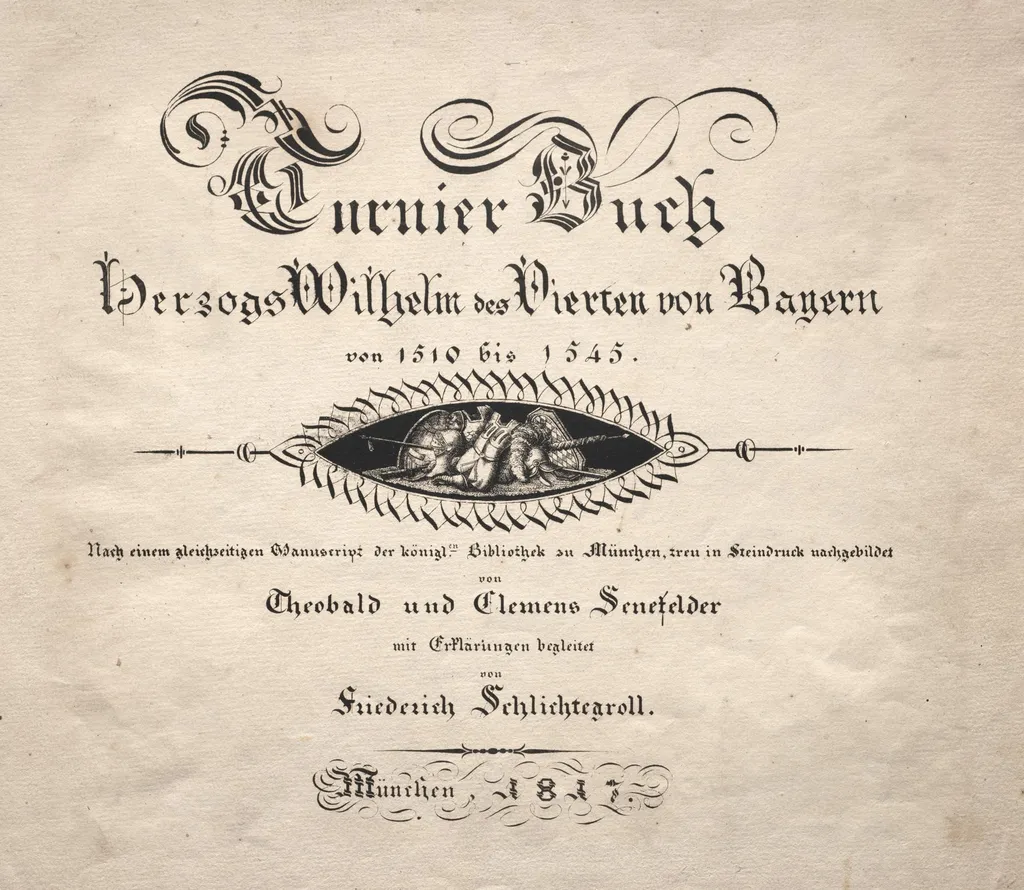 Turnier Buch
Herzogs Wilhelm des Vierten von Bayern
von 1510 bis 1545.
Nach einem gleichzeitigen Manuscript der königl.en Bibliothek zu München, treu in Steindruck nachgebildet
von
Theobald und Clemens Senefelder
mit Erklärungen begleitet
von
Friederich Schlichtegroll.
München, 1817.